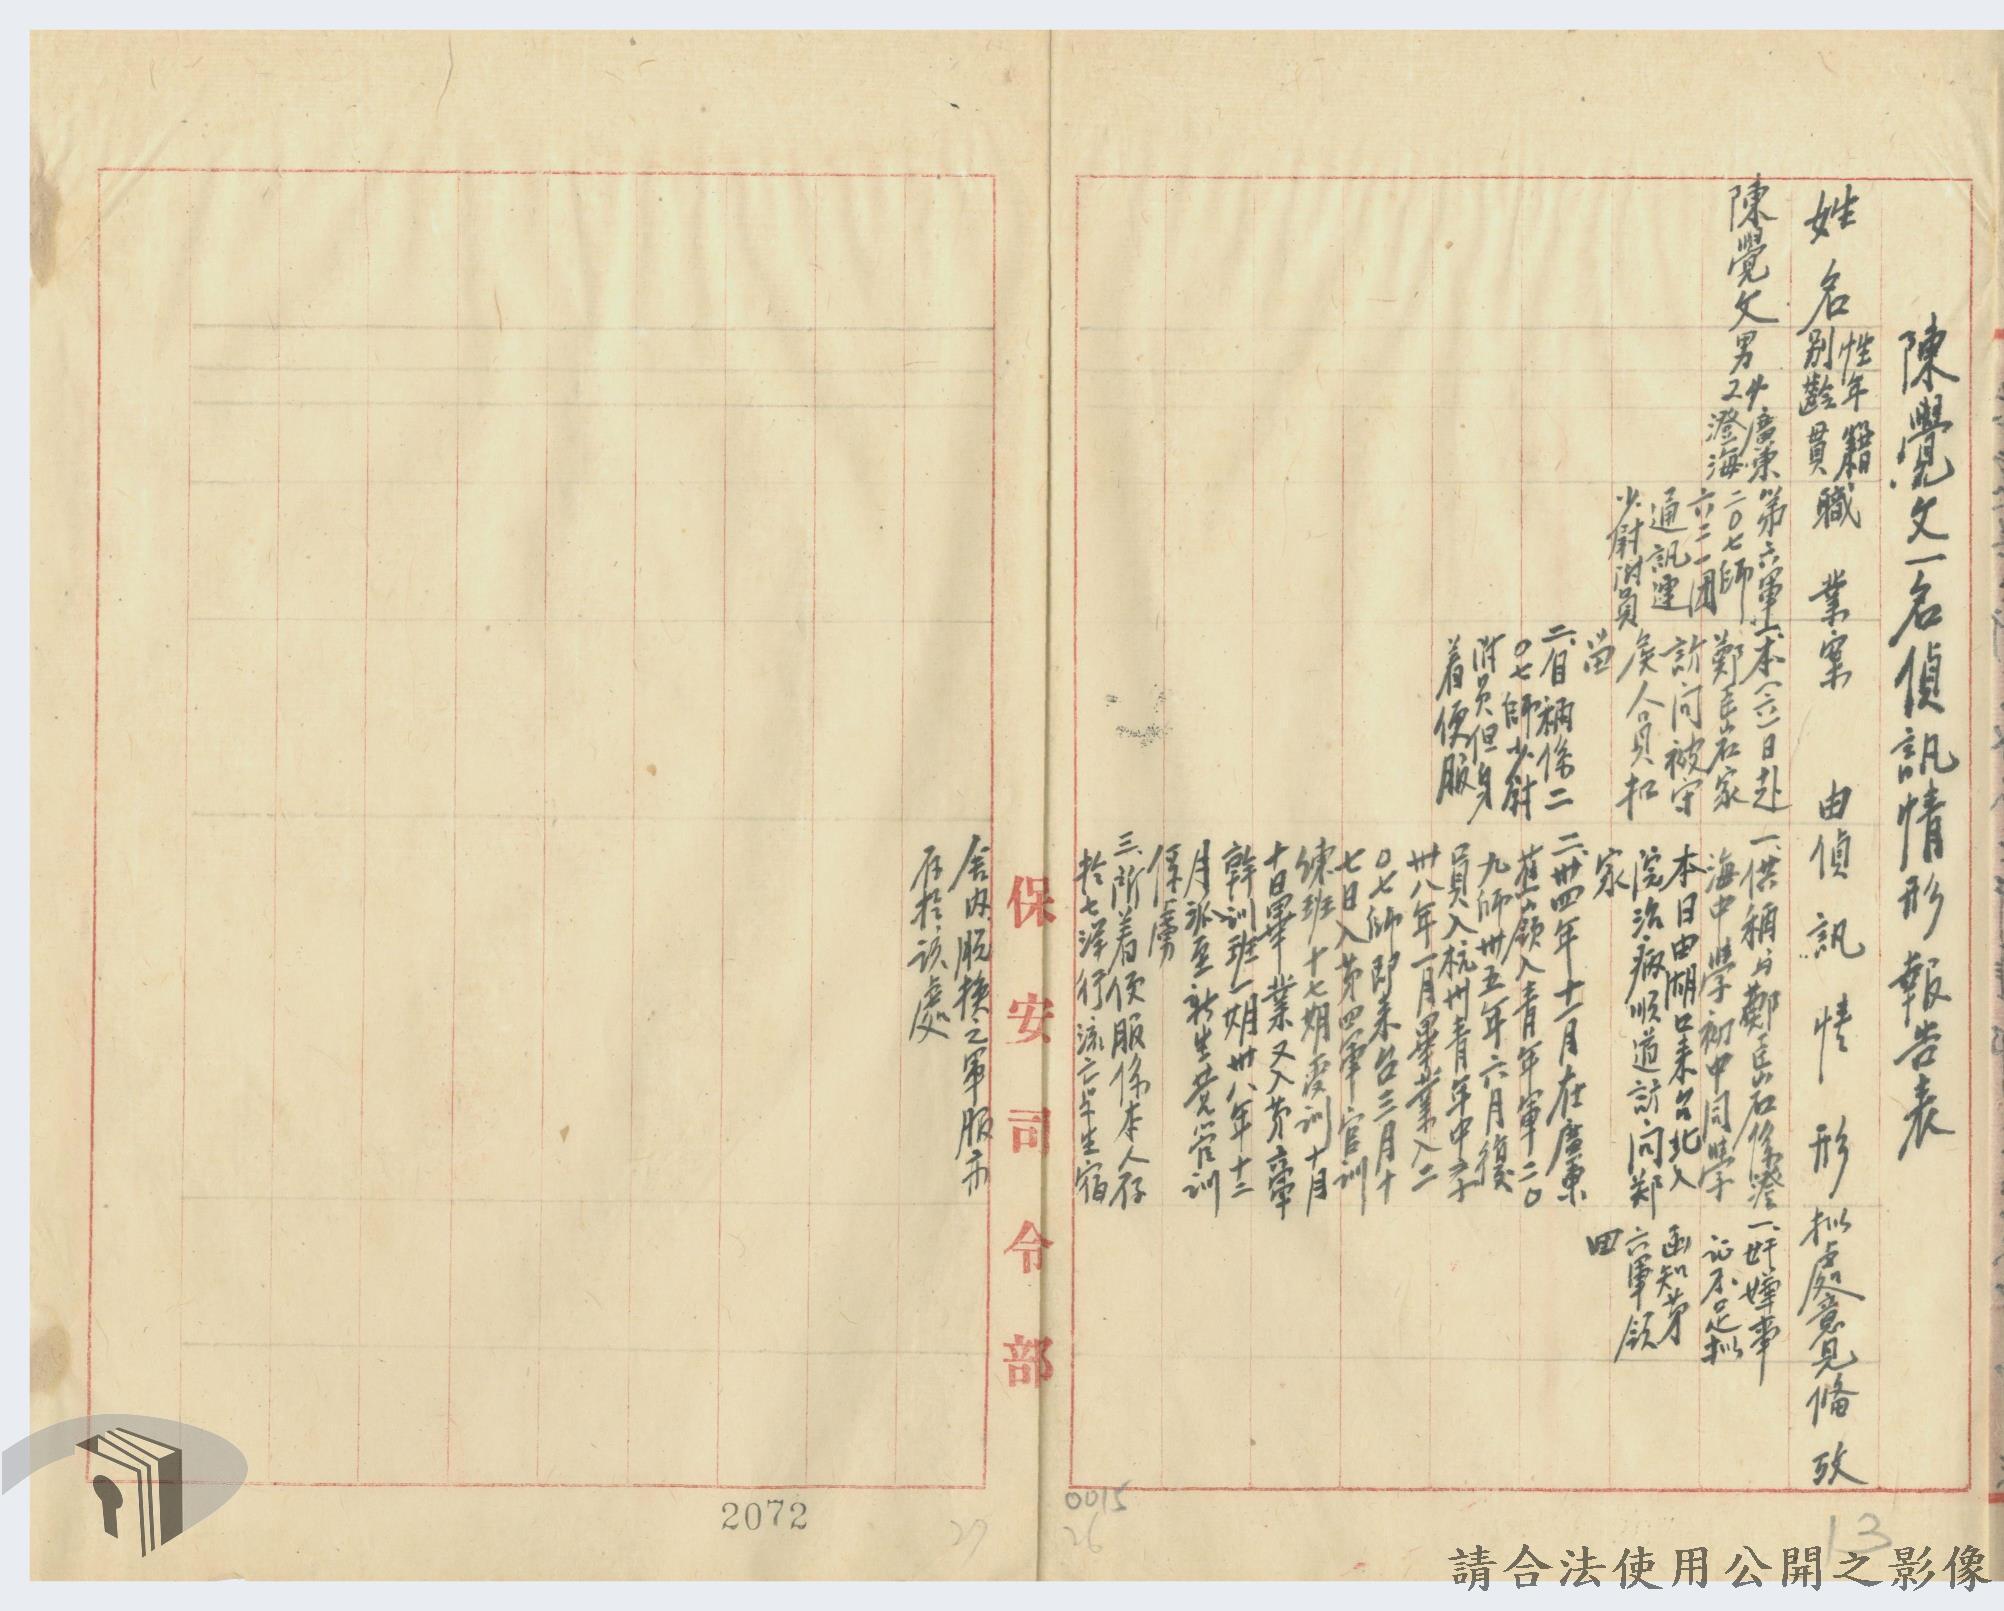 陳覺文一名偵訊情形報告表
姓名
性別
年齡
籍貫
職業
案由
偵訊情形
拟處意見
備攷
陳覺文
男
廣東
澄海
第六軍
二〇七師
六二一团
通訊連
少尉附員
一、本(六)日赴
鄭岳石家
訪问被守
矦人員扣
留
二、自稱係二
〇七師少尉
附员但身
着便服
一、供稱与鄭岳石係澄
海中學初中同學
本日由湖口来台北入
院治病順道訪问郑
家
二、卅四年十一月在廣東
蕉嶺入青年軍二〇
九師卅五年六月復
員入杭州青年中学
卅八年一月畢業入二
〇七師即来台三月十
七日入第四軍官訓
練班十七期受訓十月
十日畢業又入第六軍
幹訓班一期卅八年十二
月派至新生營管訓
俘虜
三、所着便服係本人存
於七洋行流亡学生宿
舍内脱換之軍服亦
存於該處
一、奸嫌事
证不足拟
函知第
六軍領
回
保安司令部
2072
0015
26
27
13
請合法使用公開之影像